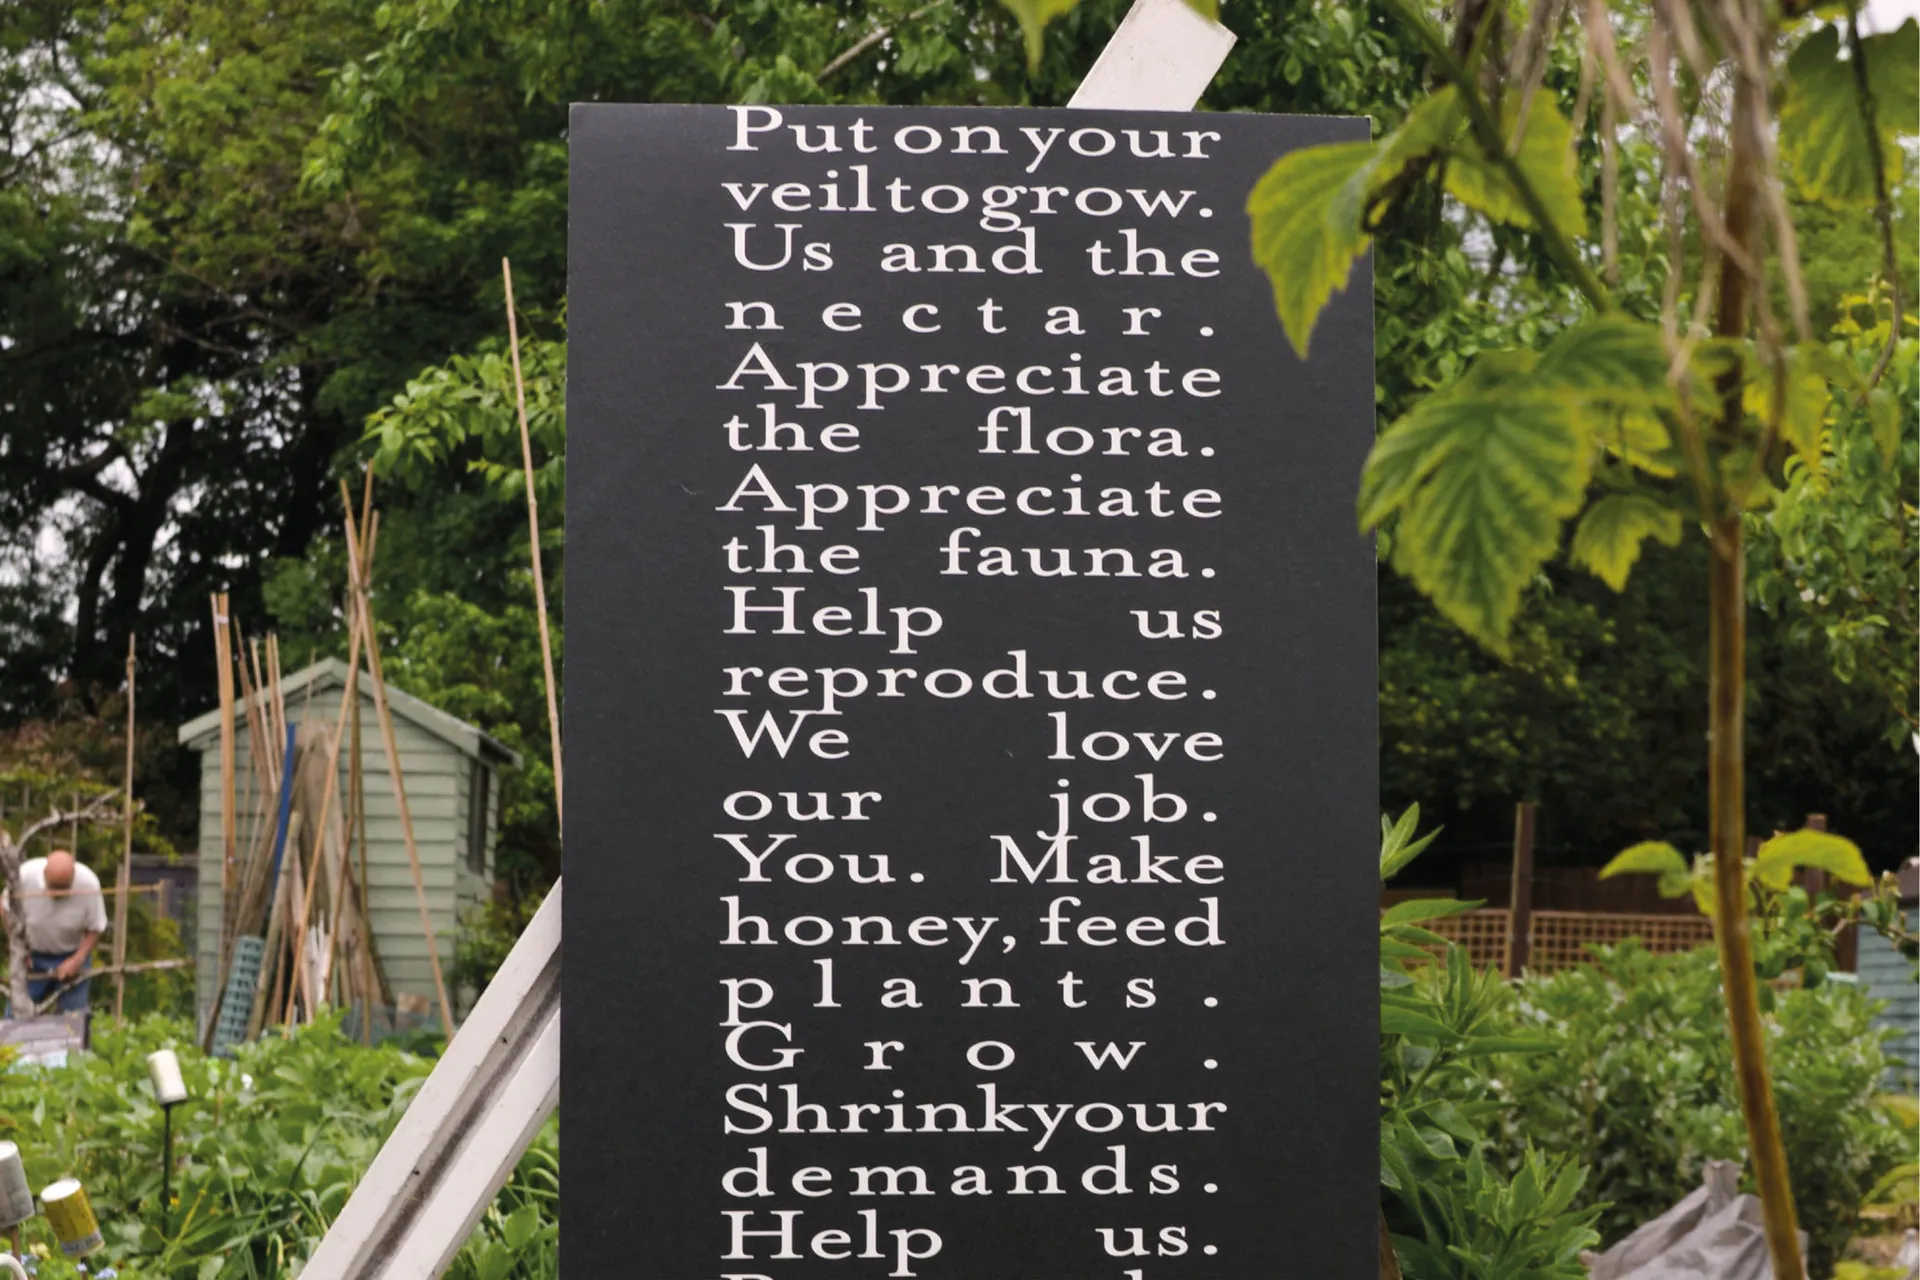 Put on your
veil to grow.
Us and the
nectar.
Appreciate
the flora.
Appreciate
the fauna.
Help us
reproduce.
We love
our job.
You. Make
honey, feed
plants.
Grow.
Shrink your
demands.
Help us.